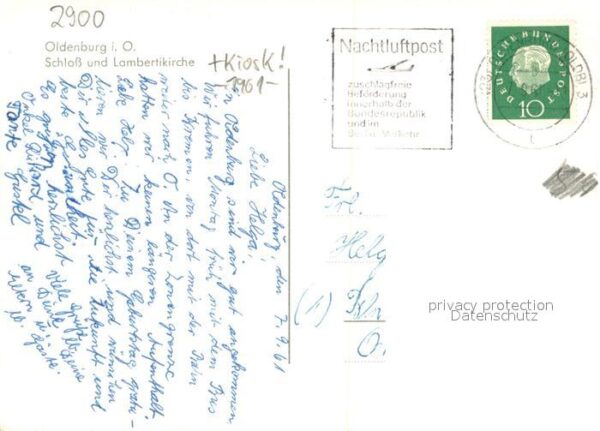 2900
Oldenburg i. O.
Schloß und Lambertikirche
+Kiosk!
-1961-
Nachtluftpost
zuschlagfreie
Beförderung
innerhalb der
Bundesrepublik
und im
Berlin-Verkehr
DEUTSCHE BUNDESPOST
10
(OLDB) 3
Oldenburg, den 7.9.61
Liebe Helga!
In Oldenburg sind wir gut angekommen.
Wir fuhren Montag früh mit dem Bus
bis Bremen, von dort mit der Bahn
weiter nach O. An der Zonengrenze
hatten wir keinen längeren Aufenthalt.
Liebe Helg. Zu Deinem Geburtstag gratu-
lieren wir Dir herzlichst und wünschen
Dir alles Gute für die Zukunft und
beste Gesundheit.
Es grüßt herzlichst
Onkel und
Tante
viele Grüße
an Deine
Eltern u.
Frl.
Helg
(1)
O.
privacy protection
Datenschutz